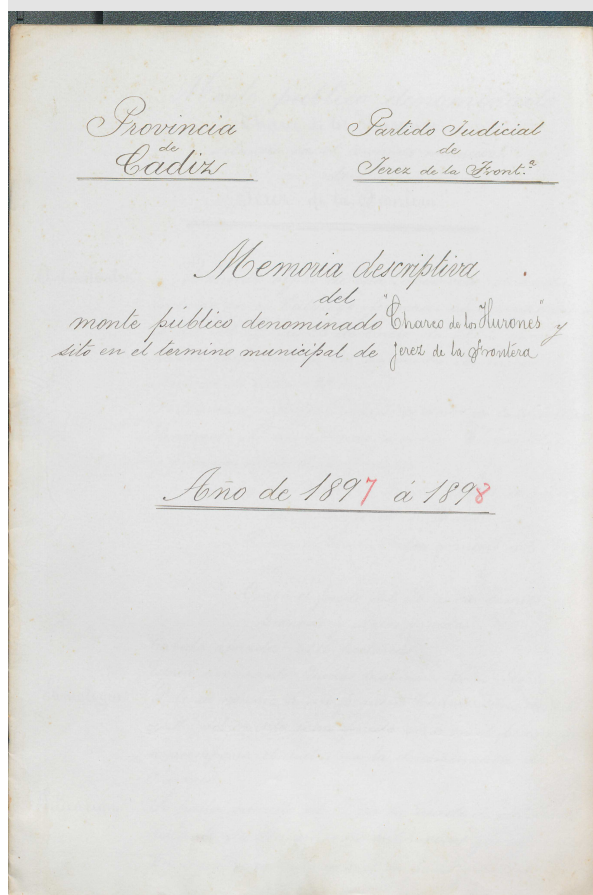 Provincia
de
Cadiz
Partido Judicial
de
Jerez de la Front.ª
Memoria descriptiva
del
monte público denominado "Charco de los Hurones" y
sito en el termino municipal de Jerez de la Frontera
Año de 1897 á 1898